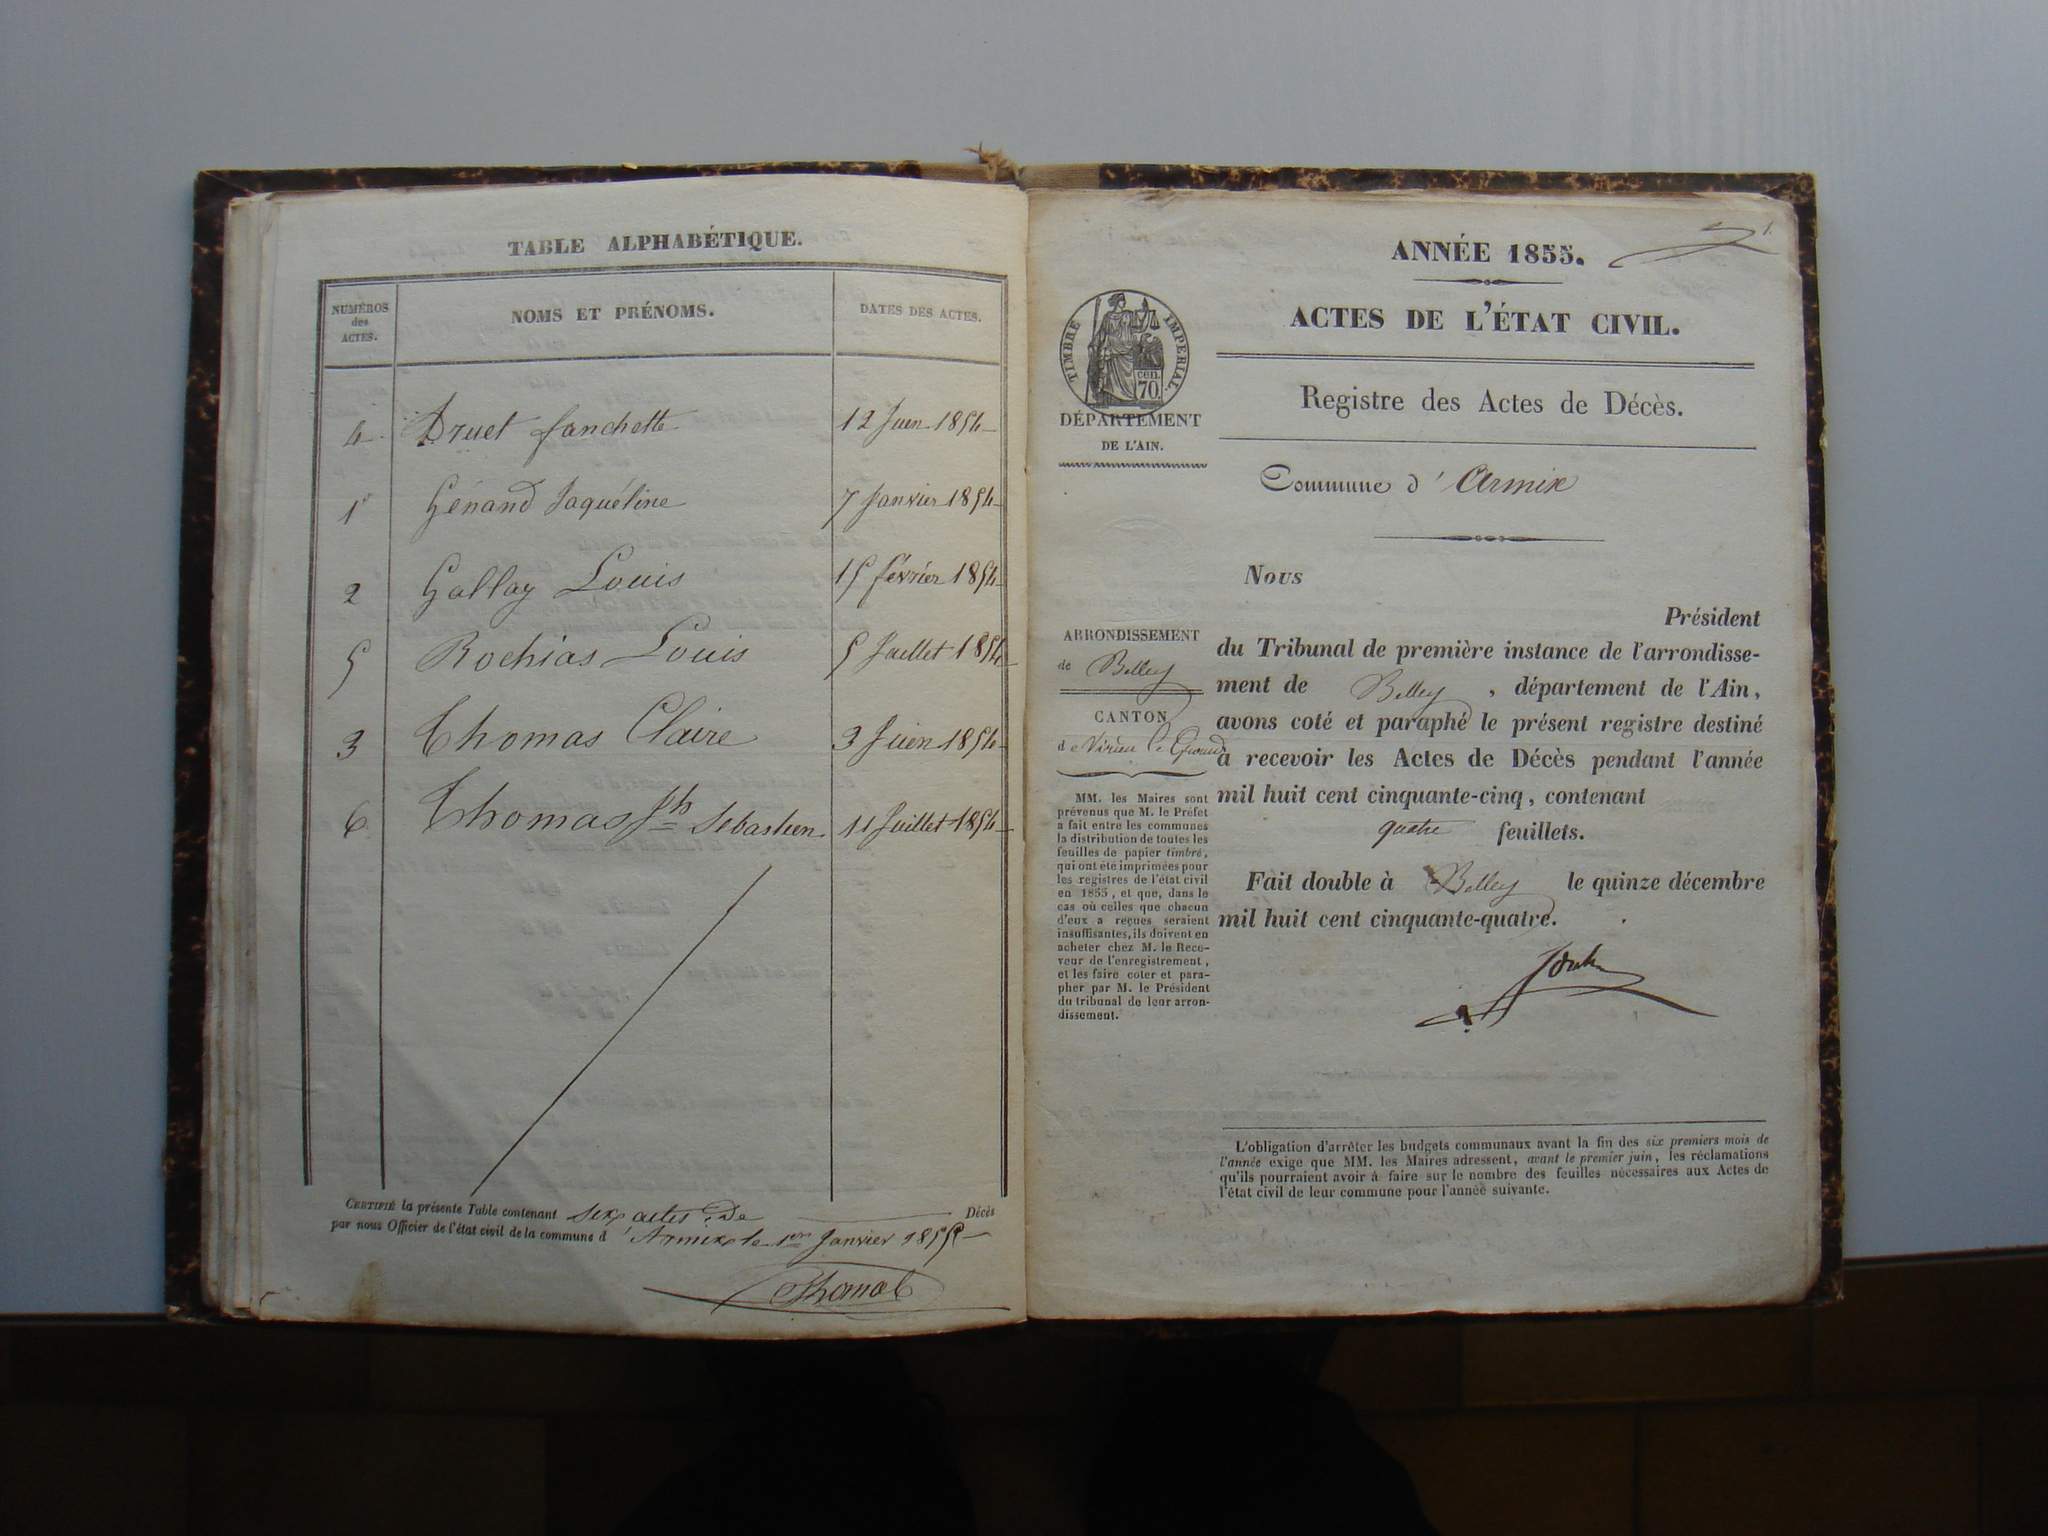 TABLE ALPHABÉTIQUE.
NUMÉROS des ACTES.
NOMS ET PRÉNOMS.
DATES DES ACTES.
4 Druet fanchette 12 Juin 1854
1 Génand Jaquéline 7 Janvier 1854
2 Gallay Louis 15 février 1854
5 Rochias Louis 5 Juillet 1854
3 Thomas Claire 3 Juin 1854
6 Thomas Jh Sebastien 11 Juillet 1854
CERTIFIÉ la présente Table contenant six actes De Décès
par nous Officier de l'état civil de la commune d'Armix le 1er Janvier 1855
1.
ANNÉE 1855.
ACTES DE L'ÉTAT CIVIL.
TIMBRE IMPERIAL
cen.
70.
DÉPARTEMENT
DE L'AIN.
Registre des Actes de Décès.
Commune d' Armix
ARRONDISSEMENT
de Belley
CANTON
de Virieu le Grand
MM. les Maires sont
prévenus que M. le Préfet
a fait entre les communes
la distribution de toutes les
feuilles de papier timbré,
qui ont été imprimées pour
les registres de l'état civil
en 1855, et que, dans le
cas où celles que chacun
d'eux a reçues seraient
insuffisantes, ils doivent en
acheter chez M. le Rece-
veur de l'enregistrement,
et les faire coter et para-
pher par M. le Président
du tribunal de leur arron-
dissement.
Nous
Président
du Tribunal de première instance de l'arrondisse-
ment de Belley, département de l'Ain,
avons coté et paraphé le présent registre destiné
à recevoir les Actes de Décès pendant l'année
mil huit cent cinquante-cinq, contenant
quatre feuillets.
Fait double à Belley le quinze décembre
mil huit cent cinquante-quatre.
L'obligation d'arrêter les budgets communaux avant la fin des six premiers mois de
l'année exige que MM. les Maires adressent, avant le premier juin, les réclamations
qu'ils pourraient avoir à faire sur le nombre des feuilles nécessaires aux Actes de
l'état civil de leur commune pour l'année suivante.